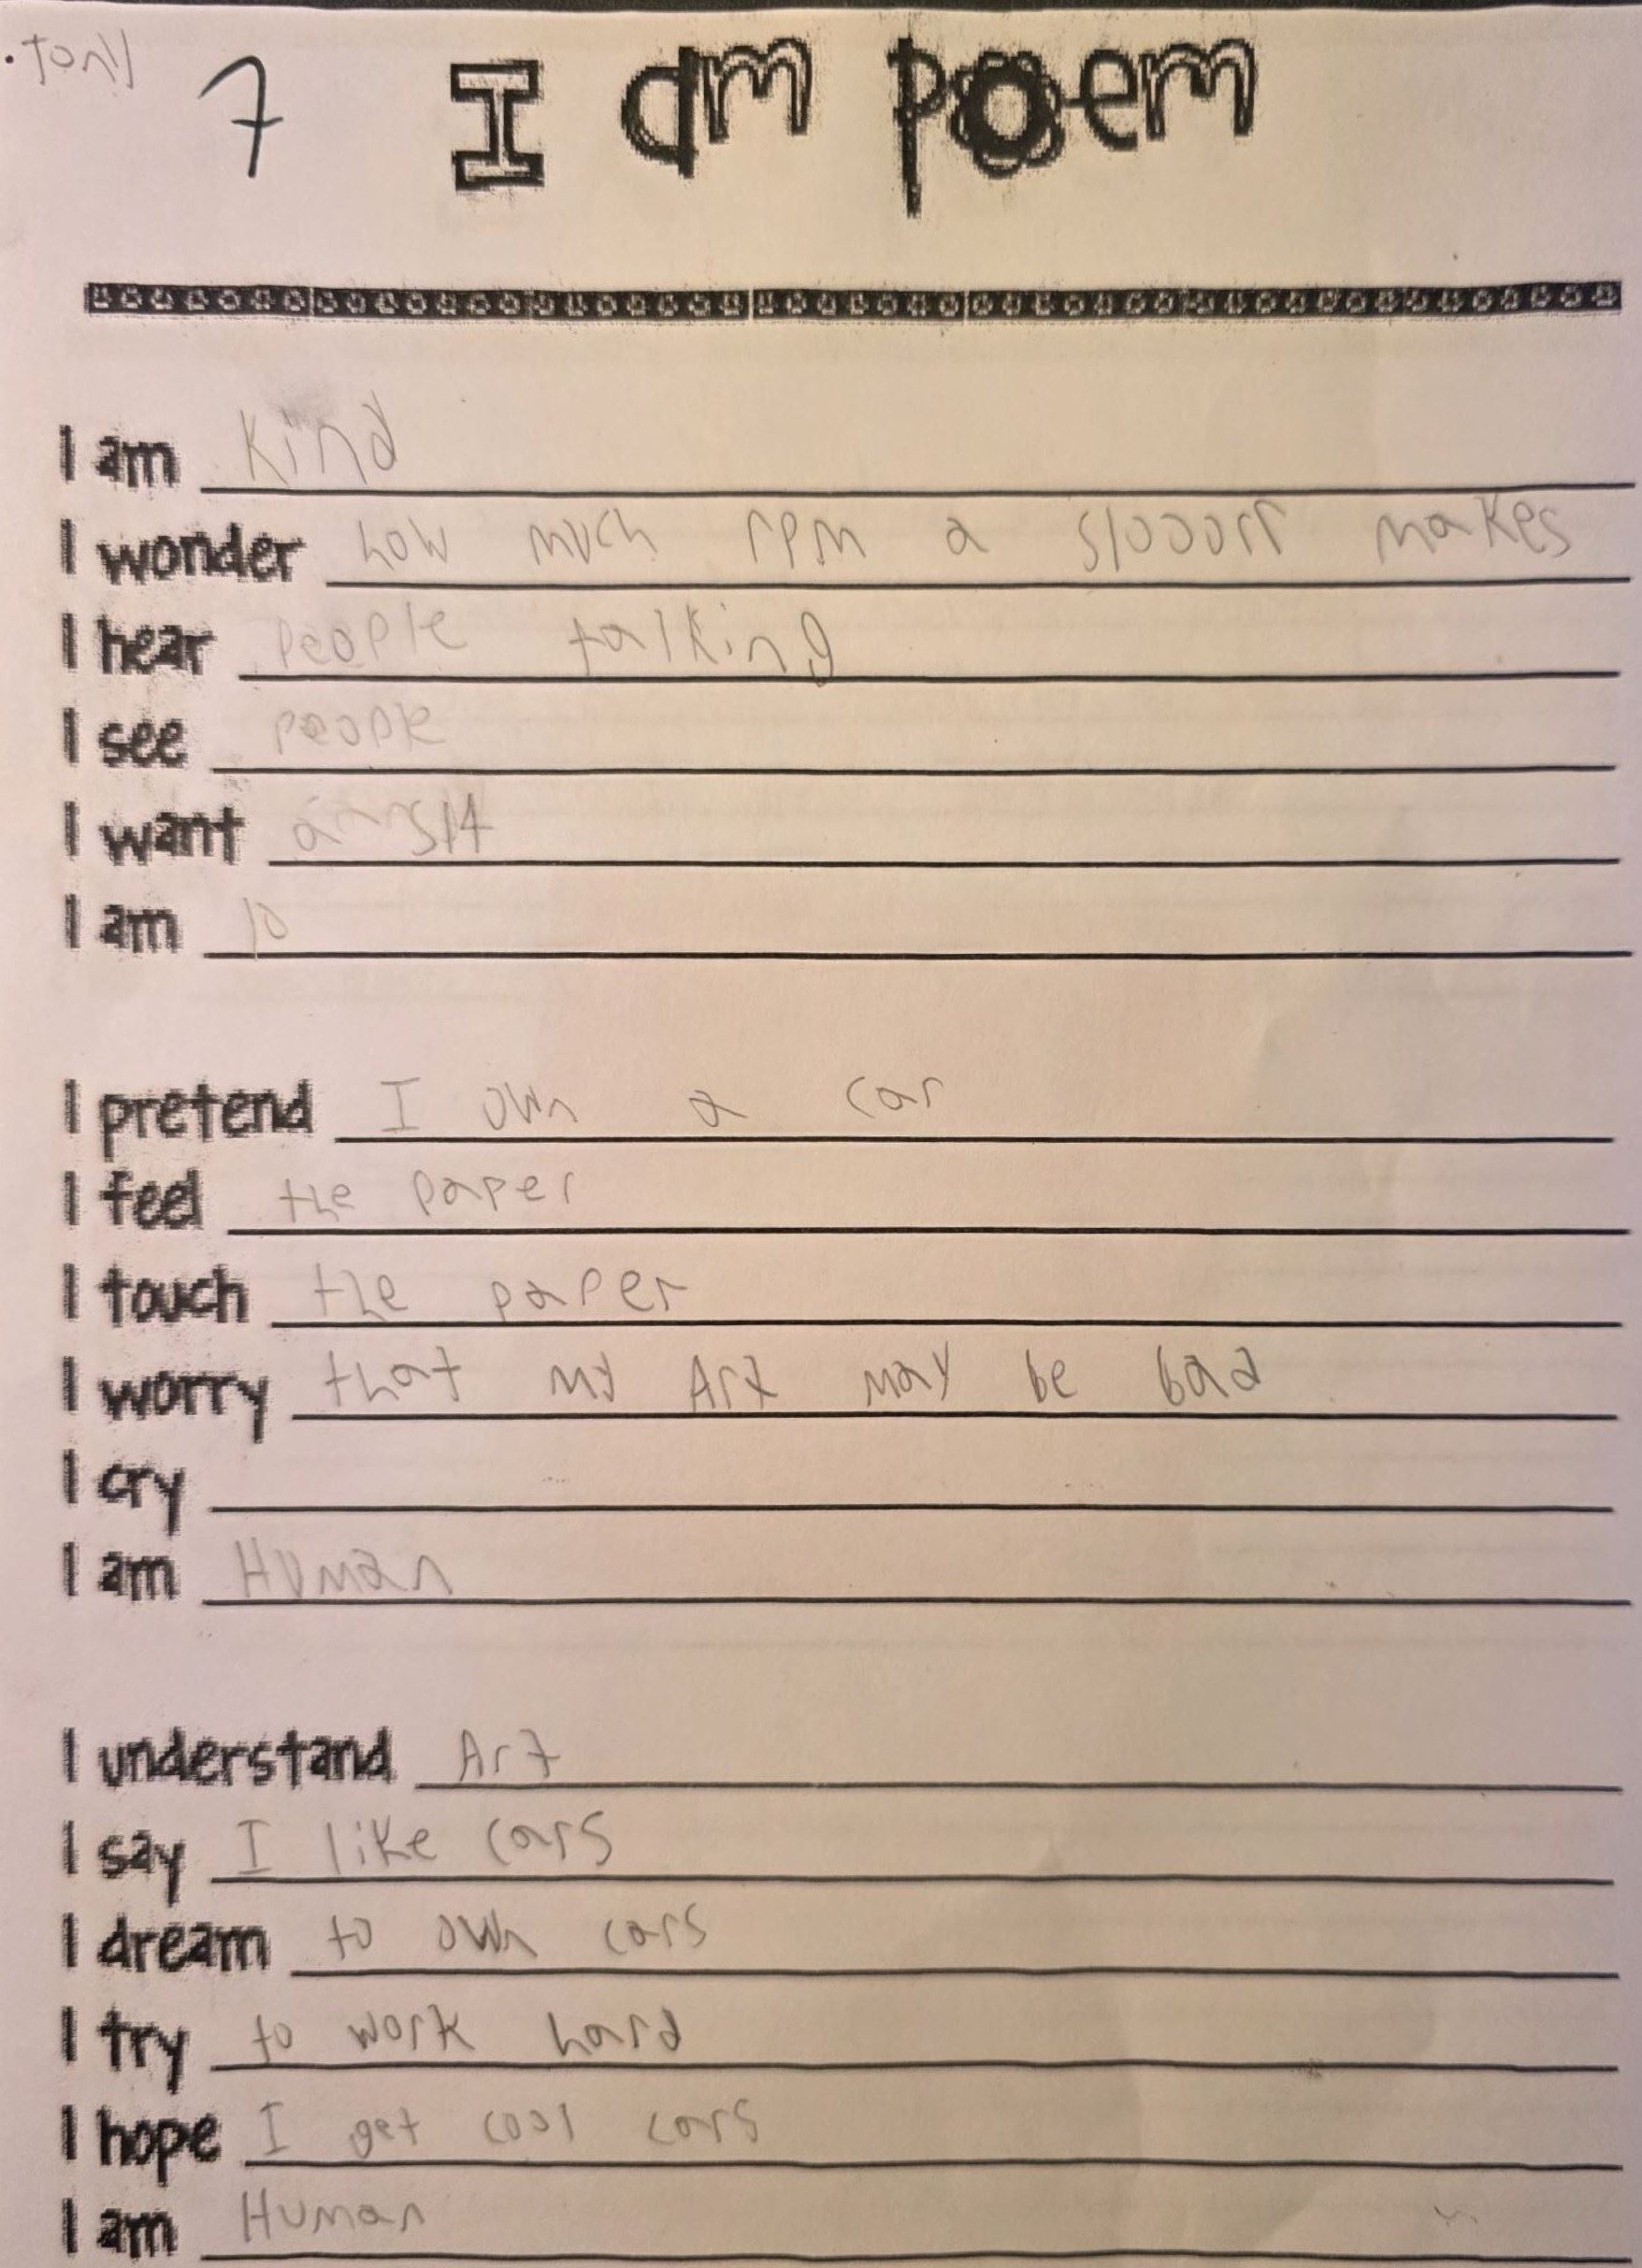 Tony
7 I am poem
I am Kind
I wonder how much rpm a s1000rr makes
I hear people talking
I see people
I want a
I am 10
I pretend I own a car
I feel the paper
I touch the paper
I worry that my Art may be bad
I cry
I am Human
I understand Art
I say I like cars
I dream to own cars
I try to work hard
I hope I get cool cars
I am Human